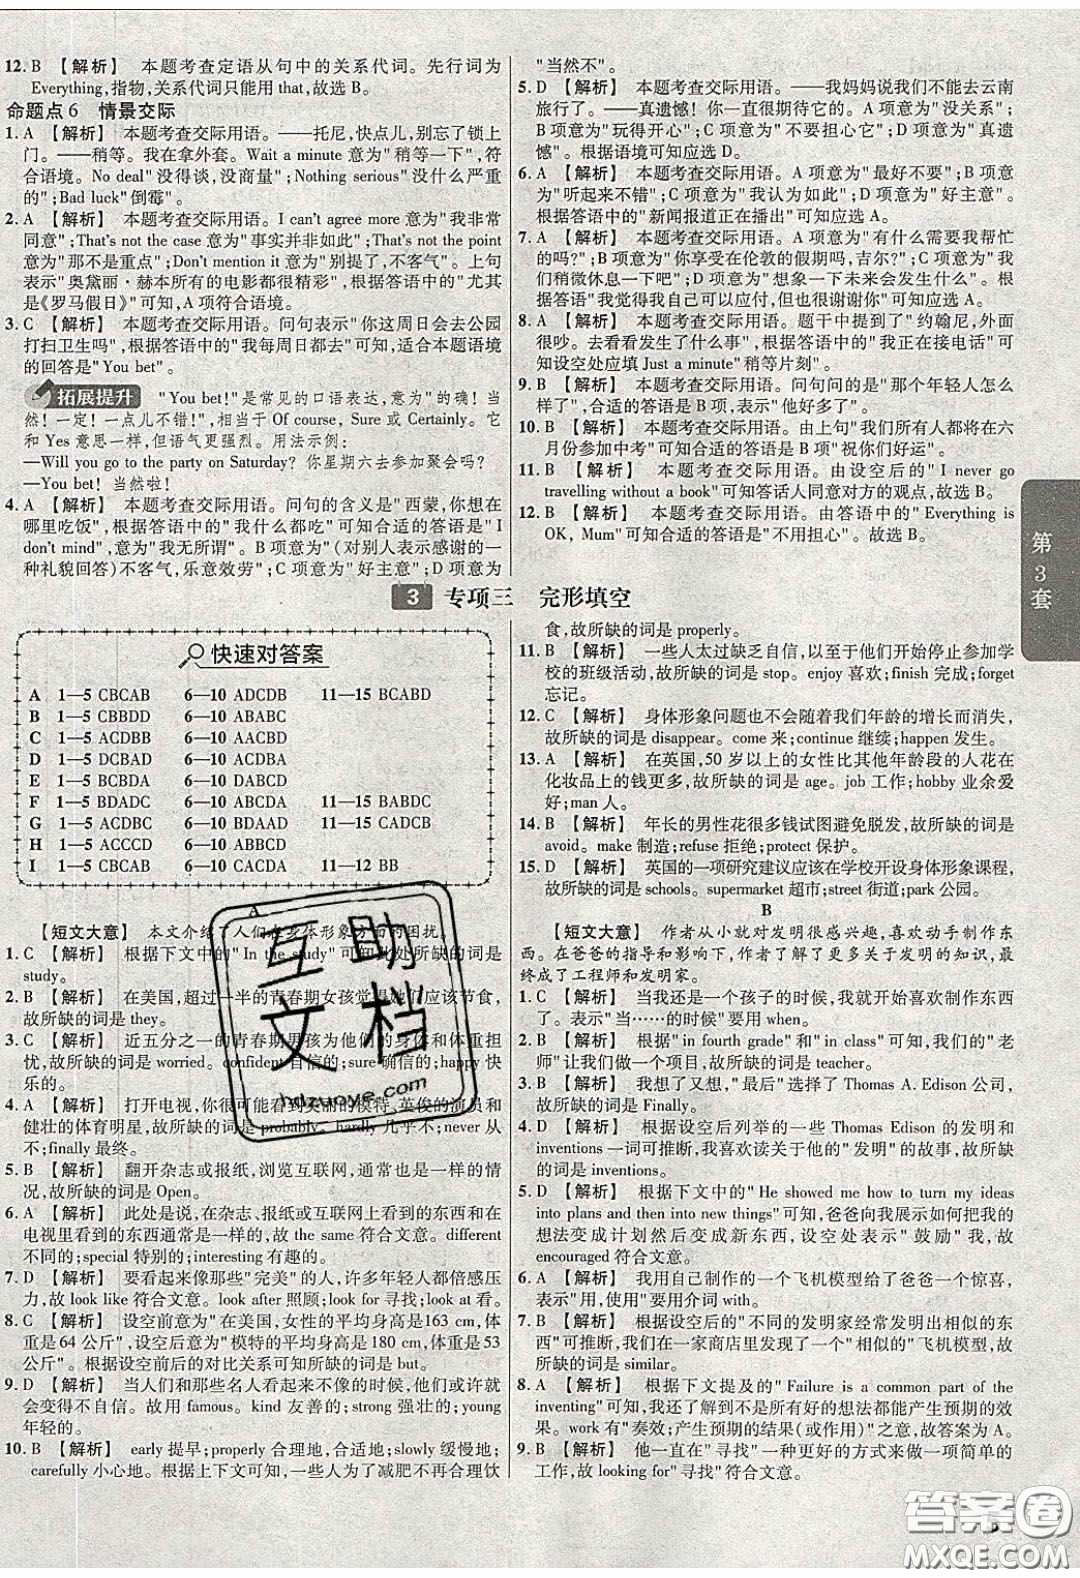 12. B 【解析】 本题考查定语从句中的关系代词。先行词为
Everything,指物,关系代词只能用that,故选B。
命题点6 情景交际
1. A 【解析】 本题考查交际用语。——托尼,快点儿,别忘了锁上
门。——稍等。我在拿外套。Wait a minute意为"稍等一下",符
合语境。No deal"没得谈,没商量";Nothing serious"没什么严重
的";Bad luck"倒霉"。
2. A 【解析】 本题考查交际用语。I can't agree more意为"我非常
同意";That's not the case意为"事实并非如此";That's not the point
意为"那不是重点";Don't mention it意为"别提了,不客气"。上句
表示"奥黛丽·赫本所有的电影都很精彩",根据答语中的"尤其
是《罗马假日》"可知,A项符合语境。
3. C 【解析】 本题考查交际用语。问句表示"你这周日会去公园
打扫卫生吗",根据答语中的"我每周日都去"可知,符合本题语境
的回答是"You bet"。
拓展提升 "You bet!"是常见的口语表达,意为"的确!当
然!一定!一点儿不错!"相当于Of course, Sure或Certainly。它
和Yes意思一样,但语气更强烈。用法示例:
—Will you go to the party on Saturday? 你星期六去参加聚会吗?
—You bet! 当然啦!
4. A 【解析】 本题考查交际用语。问句的含义是"西蒙,你想在
哪里吃饭",根据答语中的"我什么都吃"可知合适的答语是"I
don't mind",意为"我无所谓"。B项意为"(对别人表示感谢的
一种礼貌回答)不客气,乐意效劳";C项意为"好主意";D项意为
"当然不"。
5. D 【解析】 本题考查交际用语。——我妈妈说我们不能去云南
旅行了。——真遗憾!你们一直很期待它的。A项意为"没关系";
B项意为"玩得开心";C项意为"不要担心它";D项意为"真遗
憾"。根据语境可知应选D。
6. A 【解析】 本题考查交际用语。A项意为"最好不要";B项意
为"听起来不错";C项意为"我认为如此";D项意为"好主意"。
根据答语中的"新闻报道正在播出"可知应选A。
7. A 【解析】 本题考查交际用语。A项意为"有什么需要我帮忙
的吗";B项意为"你享受在伦敦的假期吗,吉尔?";C项意为"我们
稍微休息一下吧";D项意为"想象一下未来会发生什么"。根
据答语"我觉得我自己可以应付,但也很谢谢你"可知应选A。
8. A 【解析】 本题考查交际用语。题干中提到了"约翰尼,外面
很吵。去看看发生了什么事",根据答语中的"我正在接电话"可
知设空处应填Just a minute"稍等片刻"。
9. B 【解析】 本题考查交际用语。问句问的是"那个年轻人怎么
样了",合适的答语是B项,表示"他好多了"。
10. B 【解析】 本题考查交际用语。由上句"我们所有人都将在六
月份参加中考"可知合适的答语是B项"祝你们好运"。
11. B 【解析】 本题考查交际用语。由设空后的"I never go
travelling without a book"可知答话人同意对方的观点,故选B。
12. B 【解析】 本题考查交际用语。由答语中的"Everything is
OK, Mum"可知合适的答语是"不用担心"。故选B。
第3套
3 专项三 完形填空
快速对答案
A 1—5 CBCAB 6—10 ADCDB 11—15 BCABD
B 1—5 CBBDD 6—10 ABABC
C 1—5 ACDBB 6—10 AACBD
D 1—5 DCBAD 6—10 ACDBA
E 1—5 BCBDA 6—10 DABCD
F 1—5 BDADC 6—10 ABCDA 11—15 BABDC
G 1—5 ACDBC 6—10 BDAAD 11—15 CADCB
H 1—5 ACCCD 6—10 ABBCD
I 1—5 CBCAB 6—10 CACDA 11—12 BB
A
【短文大意】 本文介绍了人们在身体形象方面的困扰。
1. C 【解析】 根据下文中的"In the study"可知此处所缺的词是
study。
2. B 【解析】 在美国,超过一半的青春期女孩觉得她们应该节食,
故所缺的词是they。
3. C 【解析】 近五分之一的青春期男孩为他们的身体和体重担
忧,故所缺的词是worried。confident自信的;sure确信的;happy快
乐的。
4. A 【解析】 打开电视,你很可能看到美丽的模特,英俊的演员和
健壮的体育明星,故所缺的词是probably。hardly几乎不;never从
不;finally最终。
5. B 【解析】 翻开杂志或报纸,浏览互联网,通常也是一样的情
况,故所缺的词是Open。
6. A 【解析】 此处是说,在杂志、报纸或互联网上看到的东西和在
电视里看到的东西通常是一样的,故the same符合文意。different
不同的;special特别的;interesting有趣的。
7. D 【解析】 要看起来像那些"完美"的人,许多年轻人都倍感压
力,故look like符合文意。look after照顾;look for寻找;look at看。
8. C 【解析】 设空前意为"在美国,女性的平均身高是163 cm,体
重是64公斤",设空后意为"模特的平均身高是180 cm,体重是53
公斤"。根据设空前后的对比关系可知所缺的词是but。
9. D 【解析】 当人们和那些名人看起来不像的时候,他们可能就
会变得不自信,故用famous。kind友善的;strong强壮的;young
年轻的。
10. B 【解析】 early提早;properly合理地,合适地;slowly缓慢地;
carefully小心地。根据上下文可知,一些人为了减肥不再合理饮
食,故所缺的词是properly。
11. B 【解析】 一些人太过缺乏自信,以至于他们开始停止参加学
校的班级活动,故所缺的词是stop。enjoy喜欢;finish完成;forget
忘记。
12. C 【解析】 身体形象问题也不会随着我们年龄的增长而消失,
故所缺的词是disappear。come来;continue继续;happen发生。
13. A 【解析】 在英国,50岁以上的女性比其他年龄段的人花在
化妆品上的钱更多,故所缺的词是age。job工作;hobby业余爱
好;man人。
14. B 【解析】 年长的男性花很多钱试图避免脱发,故所缺的词是
avoid。make制造;refuse拒绝;protect保护。
15. D 【解析】 英国的一项研究建议应该在学校开设身体形象课程,
故所缺的词是schools。supermarket超市;street街道;park公园。
B
【短文大意】 作者从小就对发明很感兴趣,喜欢动手制作东
西。在爸爸的指导和影响下,作者了解了更多关于发明的知识,最
终成了工程师和发明家。
1. C 【解析】 当我还是一个孩子的时候,我就开始喜欢制作东西
了。表示"当……的时候"要用when。
2. B 【解析】 根据"in fourth grade"和"in class"可知,我们的"老
师"让我们做一个项目,故所缺的词是teacher。
3. B 【解析】 我想了又想,"最后"选择了Thomas A. Edison公司,
故所缺的词是Finally。
4. D 【解析】 根据设空后列举的一些Thomas Edison的发明和
inventions一词可推断,我喜欢读关于他的"发明"的故事,故所
缺的词是inventions。
5. D 【解析】 根据下文中的"He showed me how to turn my ideas
into plans and then into new things"可知,爸爸向我展示如何把我的
想法变成计划然后变成新东西,设空处表示"鼓励"我,故
encouraged符合文意。
6. A 【解析】 我用自己制作的一个飞机模型给了爸爸一个惊喜,
表示"用,使用"要用介词with。
7. B 【解析】 根据设空后的"不同的发明家经常发明出相似的东
西"可推断,我们在一家商店里发现了一个"相似的"飞机模型,故
所缺的词是similar。
8. A 【解析】 根据下文提及的"Failure is a common part of the
inventing"可知,我还了解到不是所有好的想法都能产生预期的效
果。work有"奏效;产生预期的结果(或作用)"之意,故答案为A。
9. B 【解析】 他一直在"寻找"一种更好的方式来做一项简单的
工作,故looking for"寻找"符合文意。
互助文档
hdzuoye.com
答案圈
MXQE.COM